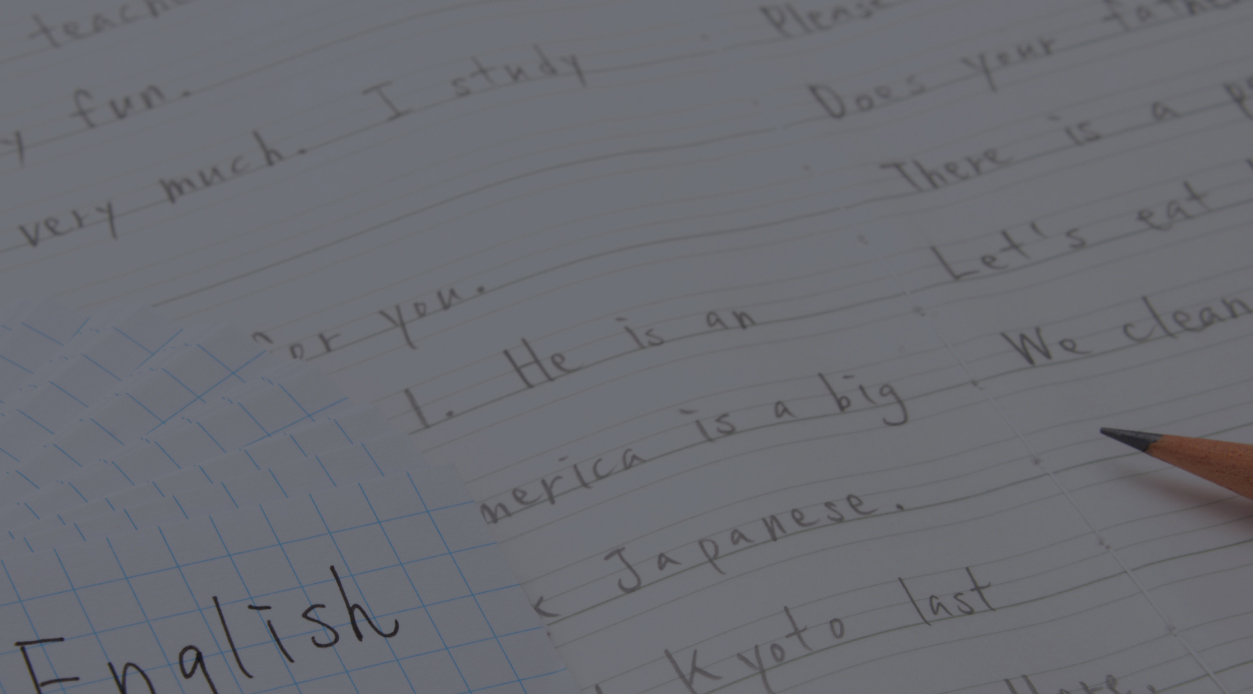 fun.
very much. I study
you.
1. He is an
is a big
Japanese.
Kyoto last
Please
Does your
There is a
Let's eat
We clean
English